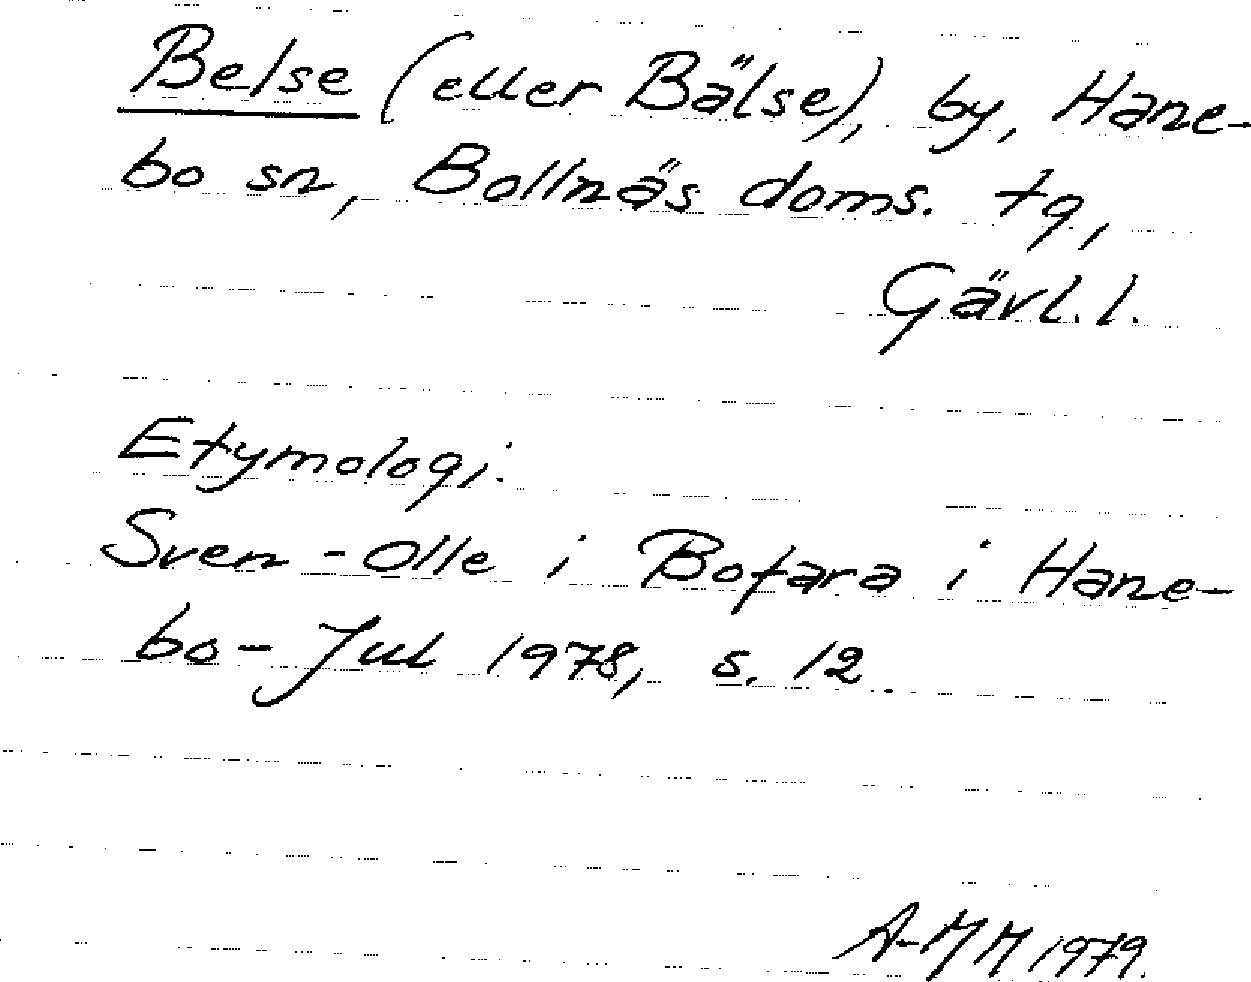 Belse (eller Bälse), by, Hane-
bo sn, Bollnäs doms. tg,
Gävl. l.
Etymologi.
Sven-Olle i Bofara i Hane-
bo-Jul 1978, s. 12.
A-MM 1979.